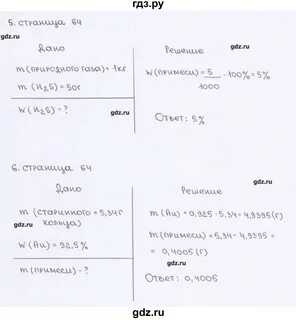 гдз.ру
5. страница 64
Дано
Решение
m (природного газа) = 1кг
m (H₂S) = 50г
W (H₂S) - ?
W (примеси) = 5/1000 · 100% = 5%
Ответ: 5%
6. страница 64
Дано
Решение
m (старинного кольца) = 5,34г
W (Au) = 92,5%
m (примеси) - ?
m (Au) = 0,925 · 5,34 = 4,9395 (г)
m (примеси) = 5,34 - 4,9395 =
= 0,4005 (г)
Ответ: 0,4005
gdz.ru
gdz.ru
gdz.ru
gdz.ru
gdz.ru
gdz.ru
gdz.ru
gdz.ru
gdz.ru
gdz.ru